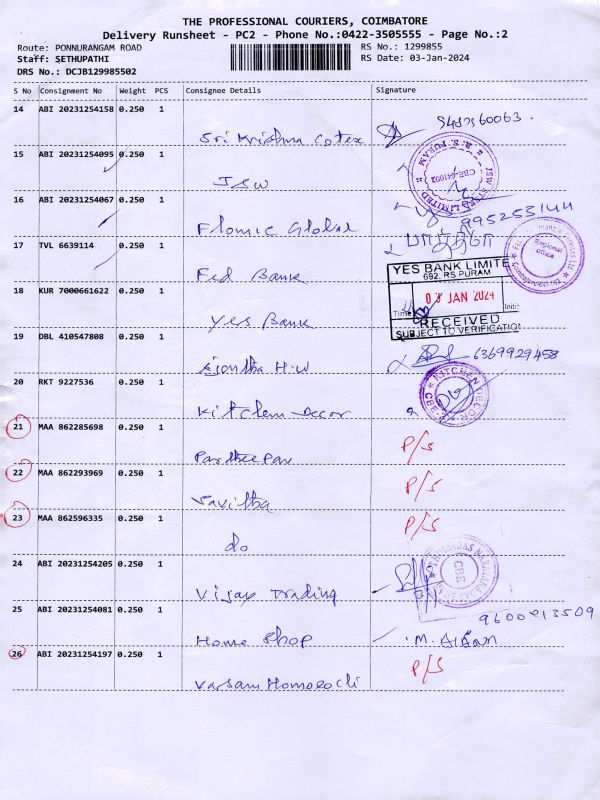 THE PROFESSIONAL COURIERS, COIMBATORE
Delivery Runsheet - PC2 - Phone No.:0422-3505555 - Page No.:2
Route: PONNURANGAM ROAD
RS No.: 1299855
Staff: SETHUPATHI
RS Date: 03-Jan-2024
DRS No.: DCJB129985502
S No Consignment No Weight PCS Consignee Details Signature
14 ABI 20231254158 0.250 1
Sri Krishna Cotex
15 ABI 20231254095 0.250 1
JSW
JSW STEEL LIMITED
R.S. PURAM
CBE-641002
16 ABI 20231254067 0.250 1
Flomic Global 9952553144
17 TVL 6639114 0.250 1
Fed Bank
Regional
office
18 KUR 7000661622 0.250 1
Yes Bank
YES BANK LIMITE
692, RS PURAM
03 JAN 2024
Time
Initi
RECEIVED
SUBJECT TO VERIFICATION
19 DBL 410547808 0.250 1
H.W 6369929458
20 RKT 9227536 0.250 1
Kitchen Decor
KITCHEN DECOR
CBE-2
21 MAA 862285698 0.250 1 P/S
Partheepan
22 MAA 862293969 0.250 1 P/S
Savitha
23 MAA 862596335 0.250 1 P/S
do
24 ABI 20231254205 0.250 1
Vijay Trading
CBE
25 ABI 20231254081 0.250 1
Home Shop
26 ABI 20231254197 0.250 1 P/S